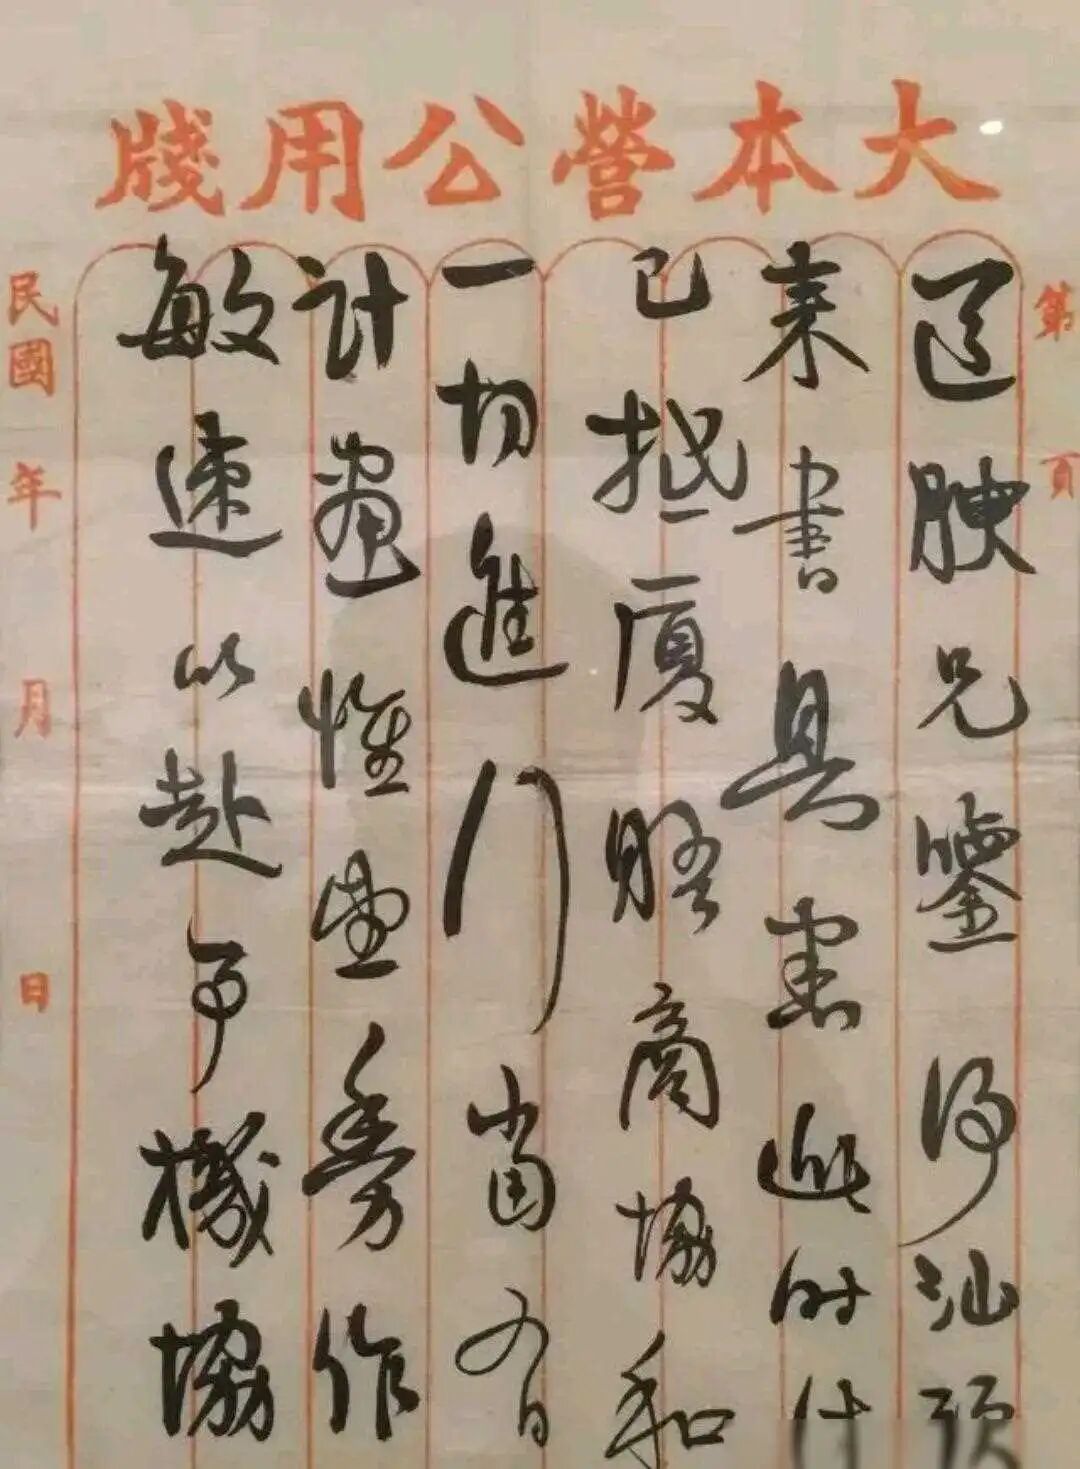 大本營公用牋
第 頁
道腴兄鑒得汕頭
来書具悉此時計
已抵廈晤商協和
一切進行當有
計畫惟望務作
敏速以赴事機協
民國 年 月 日